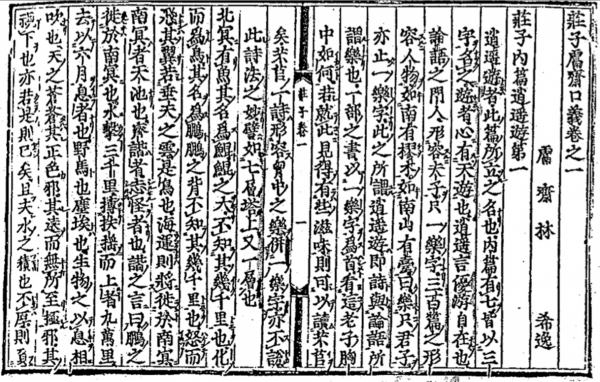 莊子鬳齋口義卷之一
鬳齋林 希逸
莊子內篇逍遙遊第一
逍遙遊者此篇所立之名也內篇有七皆以三
字名之遊者心有天遊也逍遙言優游自在也
論語之門人形容夫子只一樂字三百篇之形
容人物如南有樛木如南山有臺曰樂只君子
亦止一樂字此之所謂逍遙遊即詩與論語所
謂樂也一部之書以一樂字爲首看這老子胸
中如何若就此見得有些滋味則可以讀芣苢
莊子卷一 一
矣芣苢一詩形容胷中之樂併一樂字亦不說
此詩法之妙譬如七層塔上又一層也
北冥有魚其名爲鯤鯤之大不知其幾千里也化
而爲鳥其名爲鵬鵬之背不知其幾千里也怒而
飛其翼若垂天之雲是鳥也海運則將徙於南冥
南冥者天池也齊諧者志怪者也諧之言曰鵬之
徙於南冥也水擊三千里摶扶搖而上者九萬里
去以六月息者也野馬也塵埃也生物之以息相
吹也天之蒼蒼其正色邪其遠而無所至極邪其
視下也亦若是則已矣且夫水之積也不厚則負